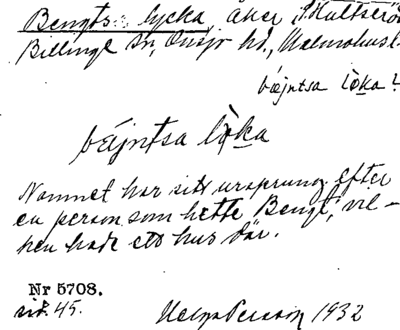 Bengts lycka, åker, S. Hultseröd
Billinge Sn, Onsjö hd., Malmöhus l.
bæjntsa lòka
bæjntsa lòka
Namnet har sitt ursprung efter
en person som hette "Bengt", vil-
ken hade ett hus där.
Nr 5708.
sid. 45.
Helge Persson 1932